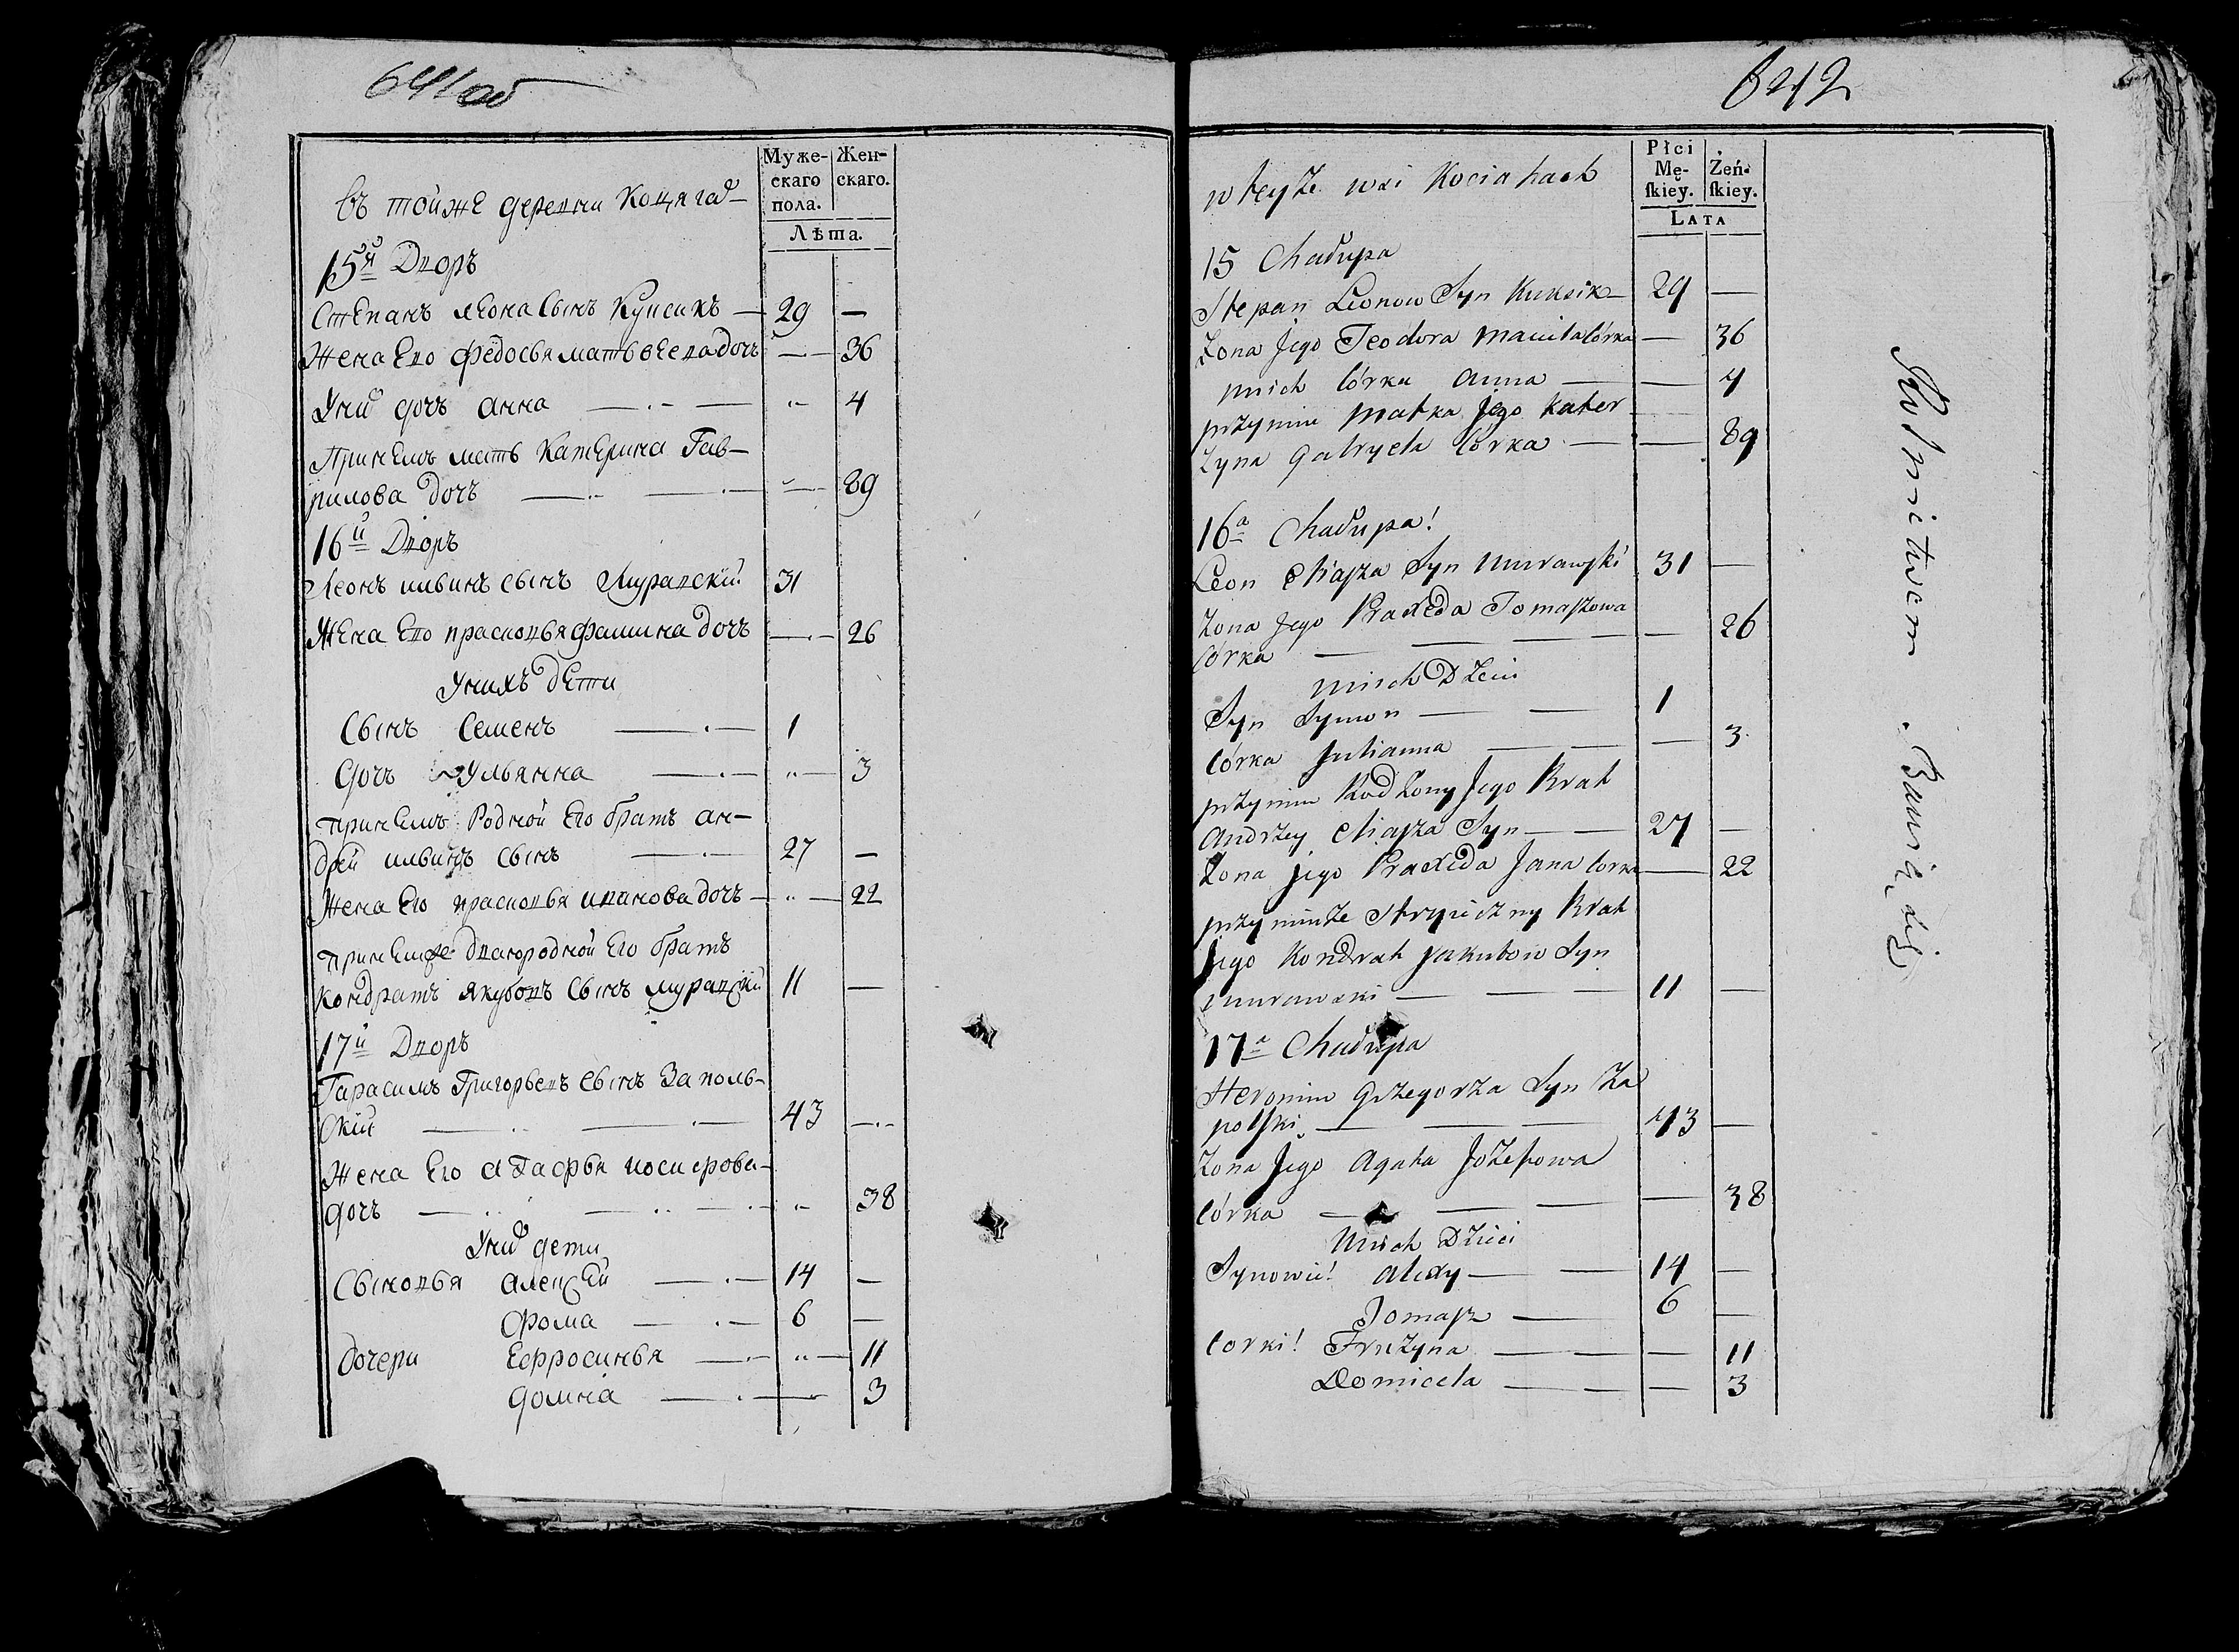 641об
Муже-
скаго
пола.
Жен-
скаго.
Лѣта.
въ тойже деревни Коцягах
15й Дворъ
Степанъ леона Сынъ Куксикъ — 29 —
Жена Его Федосья матьвеева дочъ — 36
У них дочъ анна — 4
При нем мать Катерина Гав-
рилова дочъ — 89
16й Дворъ
Леонъ ильинъ сынъ Муравский 31
Жена Его прасковья фомина дочъ — 26
У нихъ дети
Сынъ Семенъ — 1
дочъ Ульянна — 3
при нем Родной Его братъ ан-
дрей ильинъ сынъ — 27 —
Жена Его прасковья иванова дочъ — 22
при немже двоюродной Его братъ
Кондратъ якубовъ Сынъ муравский 11 —
17й Дворъ
Гарасимъ Григорьевъ сынъ Заполь-
ский — 43 —
Жена Его агафья иосифова
дочъ — 38
У них дети
Сыновья алексей — 14 —
фома — 6 —
дочери Ефросинья — 11
домна — 3
642
Płci
Mę-
ſkiey.
Żeń-
ſkiey.
LATA
w teyże wsi Kociahach
15 Chałupa
Stepan Leonow Syn Kuksik 29 —
Zona Jego Teodora Maciia córka — 36
u nich córka Anna — 4
przy nim Matka Jego Kater
zyna Gabryela Córka — 89
16a Chałupa!
Leon Eliasza Syn Murawski 31 —
Zona Jego Praxeda Tomaszowa
córka — 26
u nich Dzieci
Syn Symon — 1
córka Julianna — 3
przy nim Rodzony Jego Brat
Andrzey Eliasza Syn — 27 —
Zona jego Praxeda Jana corka — 22
przy nimze Stryieczny Brat
Jego Kondrat Jakubow Syn
Murawski — 11 —
17a Chałupa
Heronim Grzegorza Syn Za
polski — 43 —
Zona Jego Agata Jozefowa
córka — 38
u nich Dzieci
Synowie! Alexy — 14 —
Tomasz — 6 —
corki! Fruzyna — 11
Domicela — 3